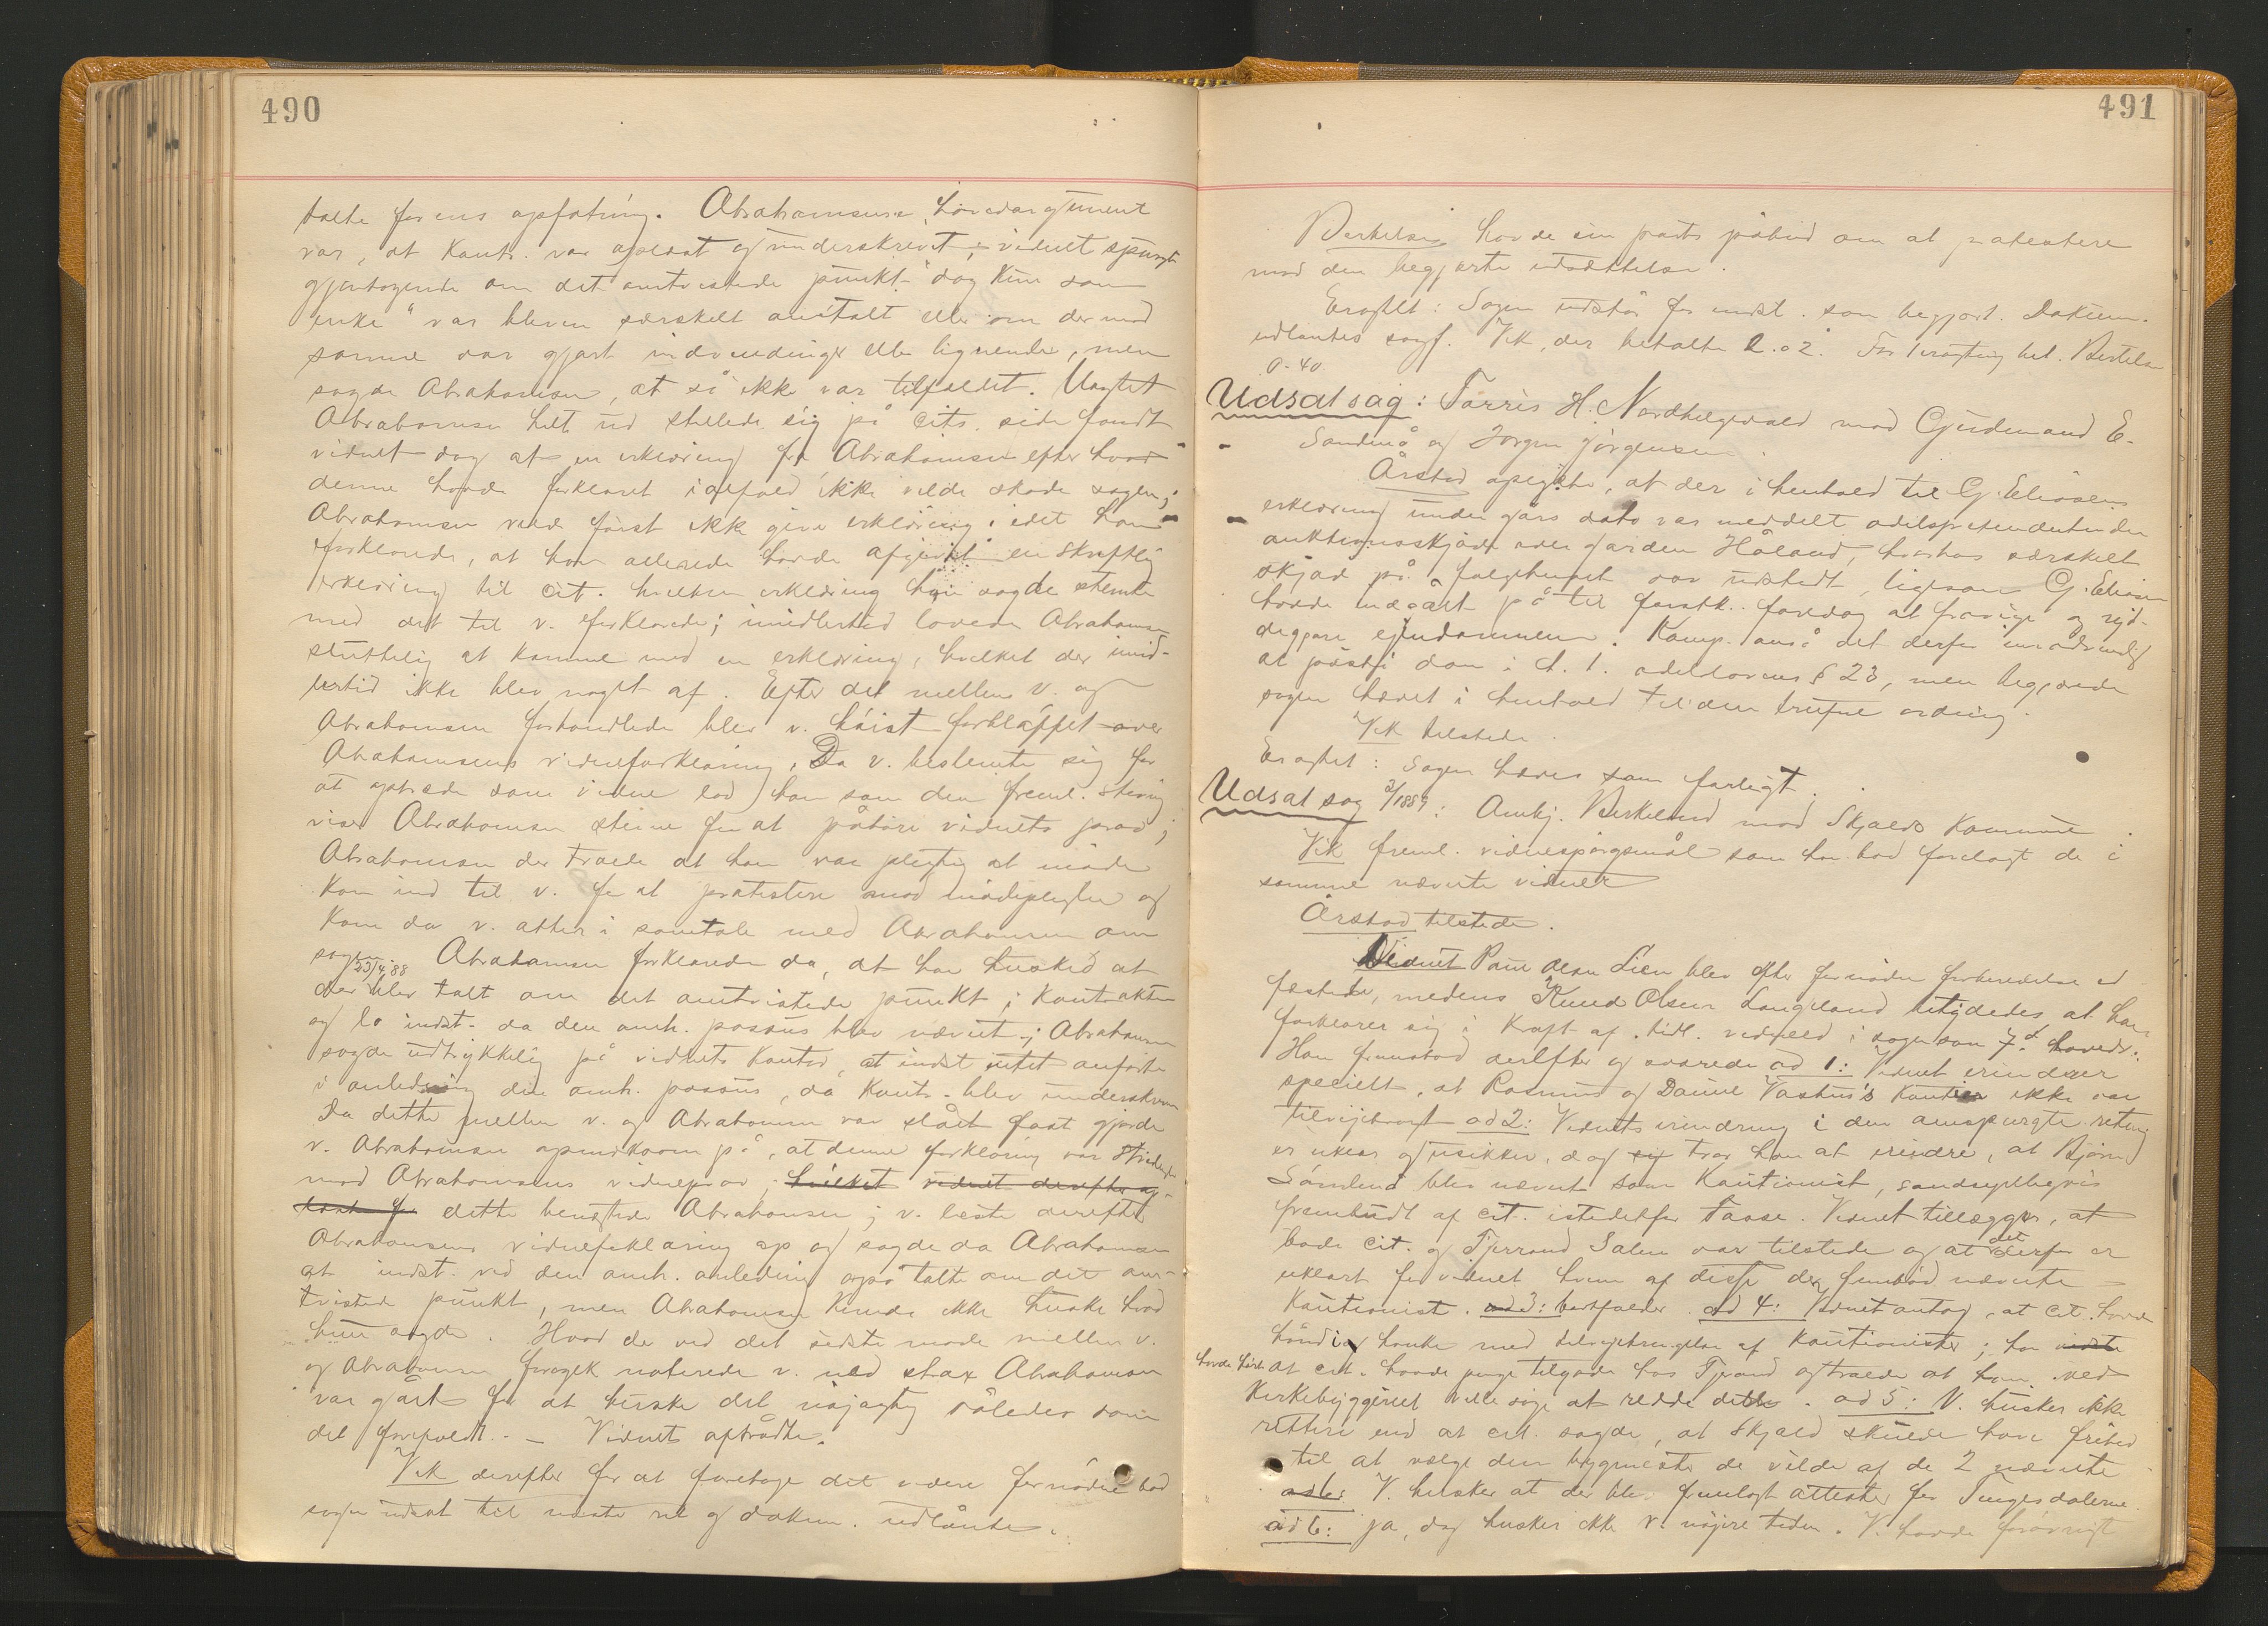 490
talte for ens opfatning. Abrahamsens hovedargument
var, at kontr. var oplæst og underskrevet; vidnet spurgte
gjentagende om det omtvistede punkt "dog kun som
enke" var bleven særskelt omtalt eller om der mod
samme var gjort indvendinger eller lignende, men
sagde Abrahamsen, at så ikke var tilfældet. Uagtet
Abrahamsen helt ud stillede sig på cits. side fandt
vidnet dog at en erklæring fra Abrahamsen efter hvad
denne havde forklaret ialfald ikke vilde skade sagen;
Abrahamsen vilde først ikke give erklæring idet han
forklarede, at han allerede havde afgivet en skriftlig
erklæring til cit. hvilken erklæring han sagde stemte
med det til v. forklarede; imidlertid lovede Abrahamsen
sluttelig at komme med en erklæring, hvilket der imid-
lertid ikke blev noget af. Efter det mellem v. og
Abrahamsen forhandlede blev v. høist forbløffet over
Abrahamsens vidneforklaring. Da v. bestemte sig for
at optræde som vidne lod han som den freml. stevning
viser Abrahamsen stevne for at påhøre vidnets prov;
Abrahamsen der troede at han var pligtig at møde
kom ind til v. for at protestere mod mødepligten og
kom da v. atter i samtale med Abrahamsen om
sagen. Abrahamsen forklarede da, at han husked at
23/4 88
der blev talt om det omtvistede punkt; kontrakten
og lo indst. da den omh. passus blev nævnt; Abrahamsen
sagde udtrykkelig på vidnets kontor, at indst intet anførte
i anledning den omh. passus, da kontr. blev underskreven
Da dette mellem v. og Abrahamsen var slået fast gjorde
v. Abrahamsen opmærksom på, at denne forklaring var stridende
mod Abrahamsens vidneprov; hvilket vidnet derefter op-
læste for dette benegtede Abrahamsen; v. læste derefter
Abrahamsens vidneforklaring op og sagde da Abrahamsen
at indst. ved den omh. anledning også talte om det om-
tvistede punkt, men Abrahamsen kunde ikke huske hvad
hun sagde. Hvad der ved det sidste møde mellem v.
og Abrahamsen foregik noterede v. ned strax Abrahamsen
var gået for at huske det nøjagtig således som
det forefaldt. – Vidnets aftrådte.
Vik derefter for at foretage det videre fornødne bad
sagen udsat til næste ret og dokum. udlånte.
491
Berkeland havde sin parts påbud om at protestere
mod den begjærte udsættelse.
Eragtet: Sagen udstår for indst. som begjært. Dokum.
udlåntes sagf. Vik, der betalte 2.02. For eragtning bet. Bertelsen
0-40
Udsat sag: Torris H. Nordhelgevold mod Gudmund E.
Sandmo og Jorgen Jörgensen.
Årstad opgjvte, at der i henhold til G. Eliasens
erklæring under gårs dato var meddelt odelsprætendenten
auktionsskjøde over garden Håland, hvorhos særskelt
skjøde på folgehuset var udstedt, ligesom G. Eliasen
havde indgået på til forstk. foredag at fravige og ryd-
diggjøre ejendommen. Komp. anså det derfor unødvendig
at påstå dom i h. t. odelslovens § 23, men begjærede
sagen hævet i henhold til den trufne ordning.
Vik tilstede.
Eragtet: Sagen hæves som forligt.
Udsat sag 2/1889: Ambj. Berkeland mod Skjolds kommune
Vik freml. vidnespörgsmål som han bad forelagt de i
samme nævnte vidner
Årstad tilstede.
Vidnet Poul Olsen Lien blev efter fornöden forberedelse ed
fæstede, medens Knud Olsen Langeland betydedes at han
forklarer sig i kraft af tidl. vidneed i sagen som 7d hovedv.
Han fremstod derefter og svarede ad 1: Vidnet erindrer
specielt, at Rasmus og Daniel Vastus's kaution ikke var
tilvejebragt ad 2: Vidnets erindring i den omspurgte retning
er uklar og usikker, dog sy tror han at erindre, at Bjørn
Sørnlund blev nævnt som kautionist, sandsynligvis
frembudt af cit. istedetfor Taose. Vidnet tillægger, at
både cit. og Tjerrand Salen var tilstede og at det derfor er
uklart for vidnet hvem af disse der frembød nævnte
kautionist. ad 3: bortfalder ad 4: Vidnet antog, at cit. havde
händig hanke med tilvejebringelse af kautionister; han vidste
havde hørt at cit. havde penge tilgode hos Tjerand og troede at han ved
Kirkebyggeriet vilde søge at redde dette. ad 5: V. husker ikke
rettere end at cit. sagde, at Skjold skulde have frihed
til at vælge den bygmester de vilde af de 2 nævnte
ad 6: V. husker at der blev fremlagt attester for Tengesdalerne.
ad 6: ja, dog husker ikke v. nöjere tiden. V. havde forøvrigt